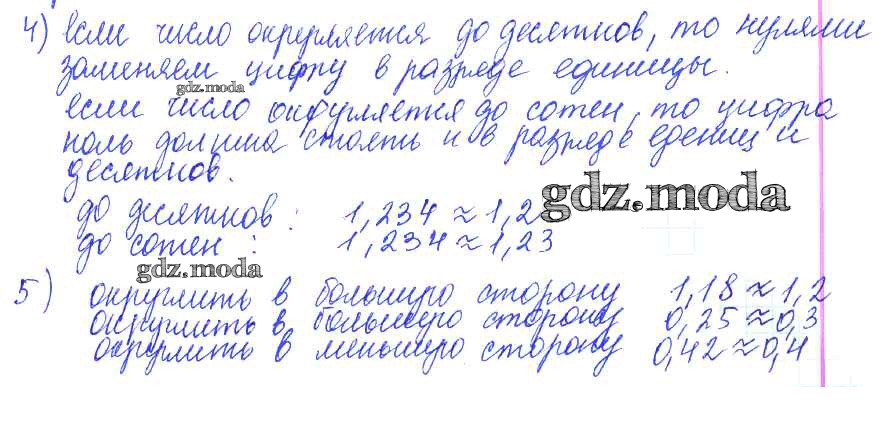 4) если число округляется до десятков, то нулями
заменяем цифру в разряде единицы.
gdz.moda
если число округляется до сотен, то цифра
ноль должна стоять и в разряде едениц и
десятков.
gdz.moda
до десятков: 1,234 ≈ 1,2
до сотен : 1,234 ≈ 1,23
gdz.moda
5) округлить в большую сторону 1,18 ≈ 1,2
округлить в большую сторону 0,25 ≈ 0,3
округлить в меньшую сторону 0,42 ≈ 0,4